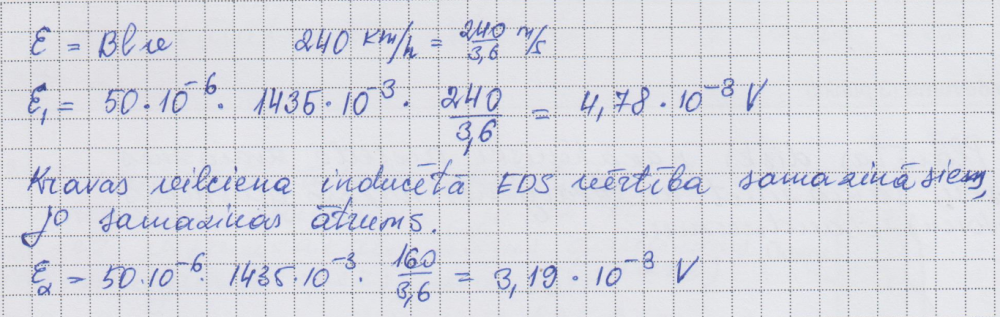 Ɛ = Blv 240 km/h = 240/3,6 m/s
Ɛ₁ = 50·10⁻⁶· 1435·10⁻³· 240/3,6 = 4,78·10⁻³ V
Kravas vilciena inducētā EDS vērtība samazināsies,
jo samazinas ātrums.
Ɛ₂ = 50·10⁻⁶· 1435·10⁻³· 160/3,6 = 3,19·10⁻³ V